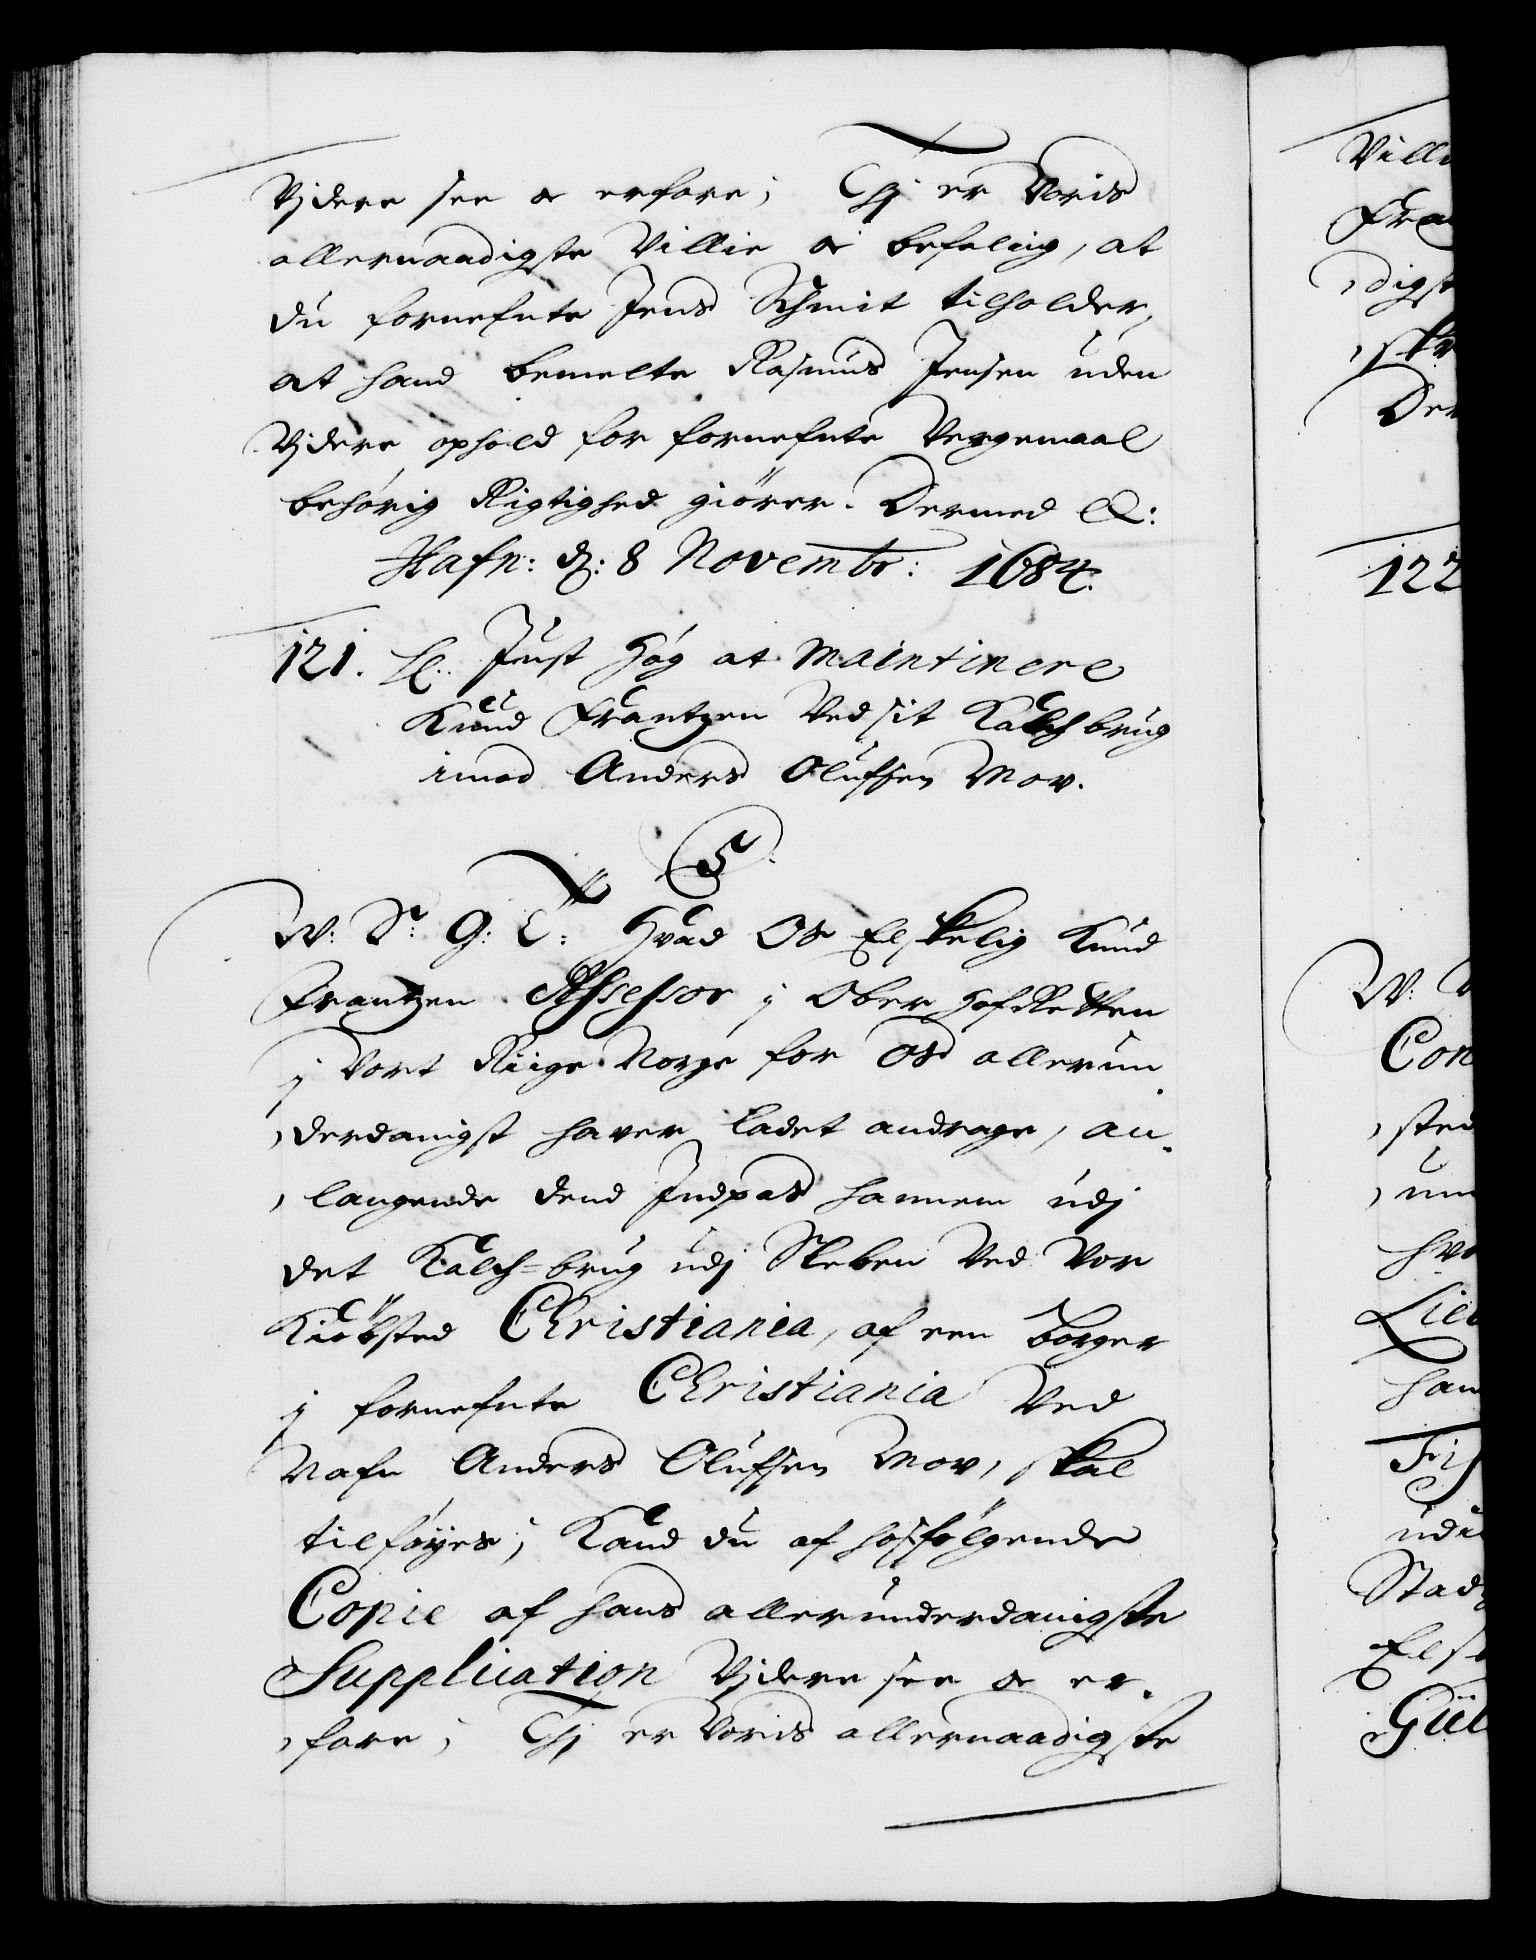 Vjdere see oc erfare; Thj er Voris
allernaadigste Villie oc befaling, at
du fornefnte Jens Schmit tilholder,
at hand bemelte Rasmus Jensen uden
Vjdere ophold for fornefnte Vergemaal
behørig Rigtighed giører. Dermed &:
Hafn: d: 8 Novembr: 1684.
121. Just Høg at Maintinere
Knud Frantzen Ved sit Kalch brug
imod Anders Olufsen Mov.
C5
W: Sr: G: T: Hvad Os Elskelig Knud
Frantzen Assessor j Ober HofRetten
j Vort Riige Norge for Os allerun
derdanigst haver ladet andrage, an-
langende dend Indpas hannem udj
det Kalch=brug udj Sleben Ved Vor
Kiøbsted Christiania, af een borger
j fornefnte Christiania Ved
Nafn Anders Olufsen Mov, skal
tilføyes; Kand du af hosfølgende
Copie af hans allerunderdanigste
Supplication Vjdere see oc er-
fare; Thj er Voris allernaadigste
Ville
Fra
digst
Der
122
W:
Con
sted
hvo
Lieb
han
udi
Stad
Els
Gül